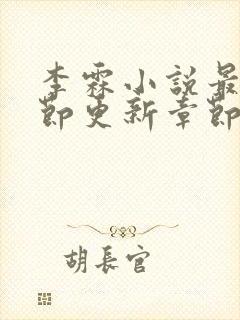 李霖小説最
節更新章節
胡長官